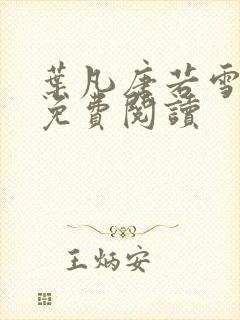 葉凡唐若雪
免費閱讀
王炳安